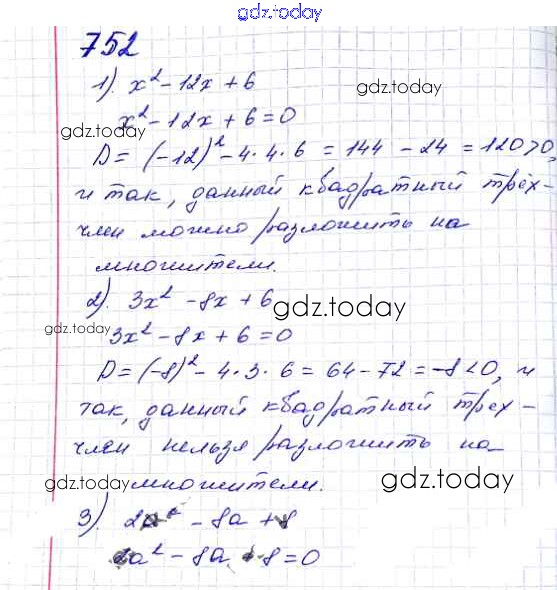 gdz.today
752
1). x² - 12x + 6
gdz.today
x² - 12x + 6 = 0
gdz.today
D = (-12)² - 4·4·6 = 144 - 24 = 120>0,
и так, данный квадратный трёх-
член можно разложить на
множители.
2). 3x² - 8x + 6
gdz.today
gdz.today
3x² - 8x + 6 = 0
D = (-8)² - 4·3·6 = 64 - 72 = -8<0, и
так, данный квадратный трех-
член нельзя разложить на
gdz.today
множители.
gdz.today
3). 2a² - 8a + 8
2a² - 8a + 8 = 0